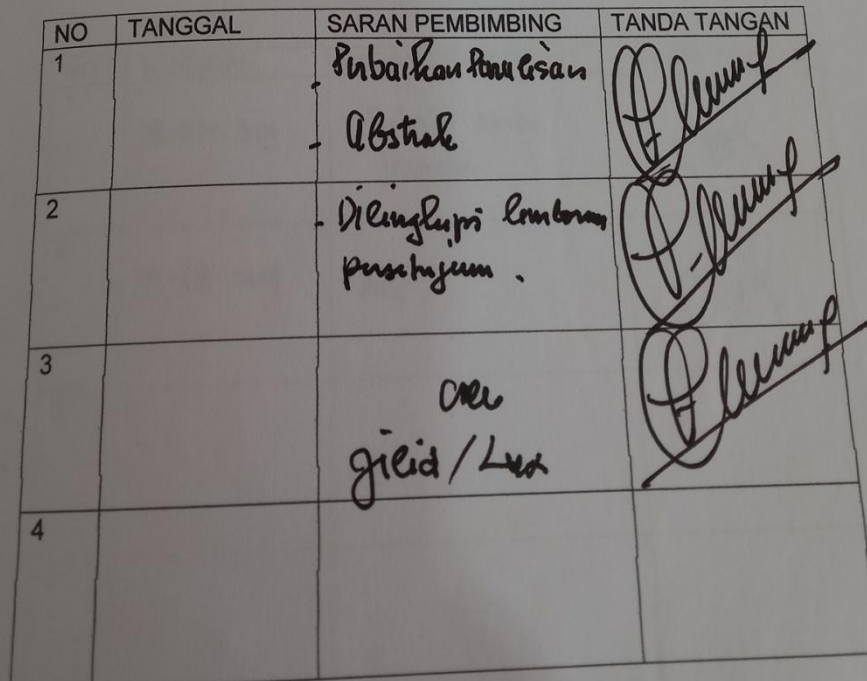 NO TANGGAL SARAN PEMBIMBING TANDA TANGAN
1 - Perbaikan Penulisan
- Abstrak
2 - Dilengkapi lembaran
persetujuan.
3 acc
gilid / Lux
4